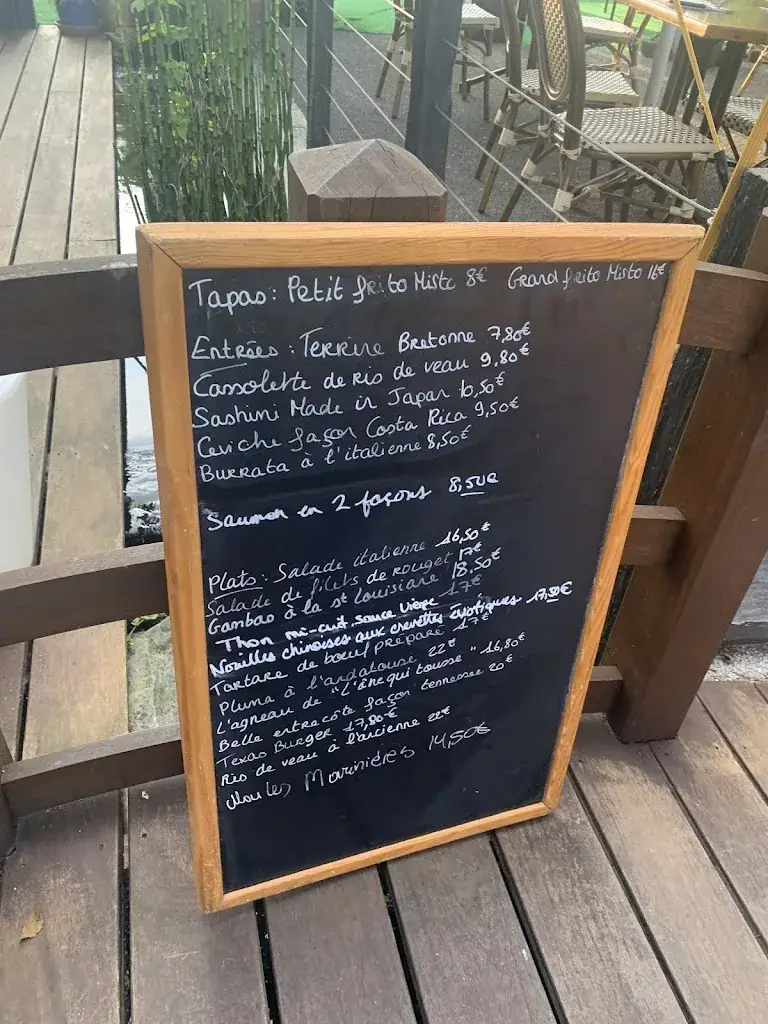 Tapas: Petit frito Misto 8€ Grand frito Misto 16€
Entrées: Terrine Bretonne 7,80€
Cassolette de Ris de veau 9,80€
Sashimi Made in Japan 10,50€
Ceviche façon Costa Rica 9,50€
Burrata à l'italienne 8,50€
Saumon en 2 façons 8,50€
Plats: Salade italienne 16,50€
Salade de filets de rouget 17€
Gambas à la st Louisiane 18.50€
Thon mi-cuit sauce vierge 17€
Nouilles chinoises aux crevettes exotiques 17,50€
Tartare de bœuf préparé 17€
Pluma à l'andalouse 22€
L'agneau de "L'âne qui tousse" 16,80€
Belle entrecôte façon tennessee 20€
Texas Burger 17,80€
Ris de veau à l'ancienne 22€
Moules Marinières 14,50€